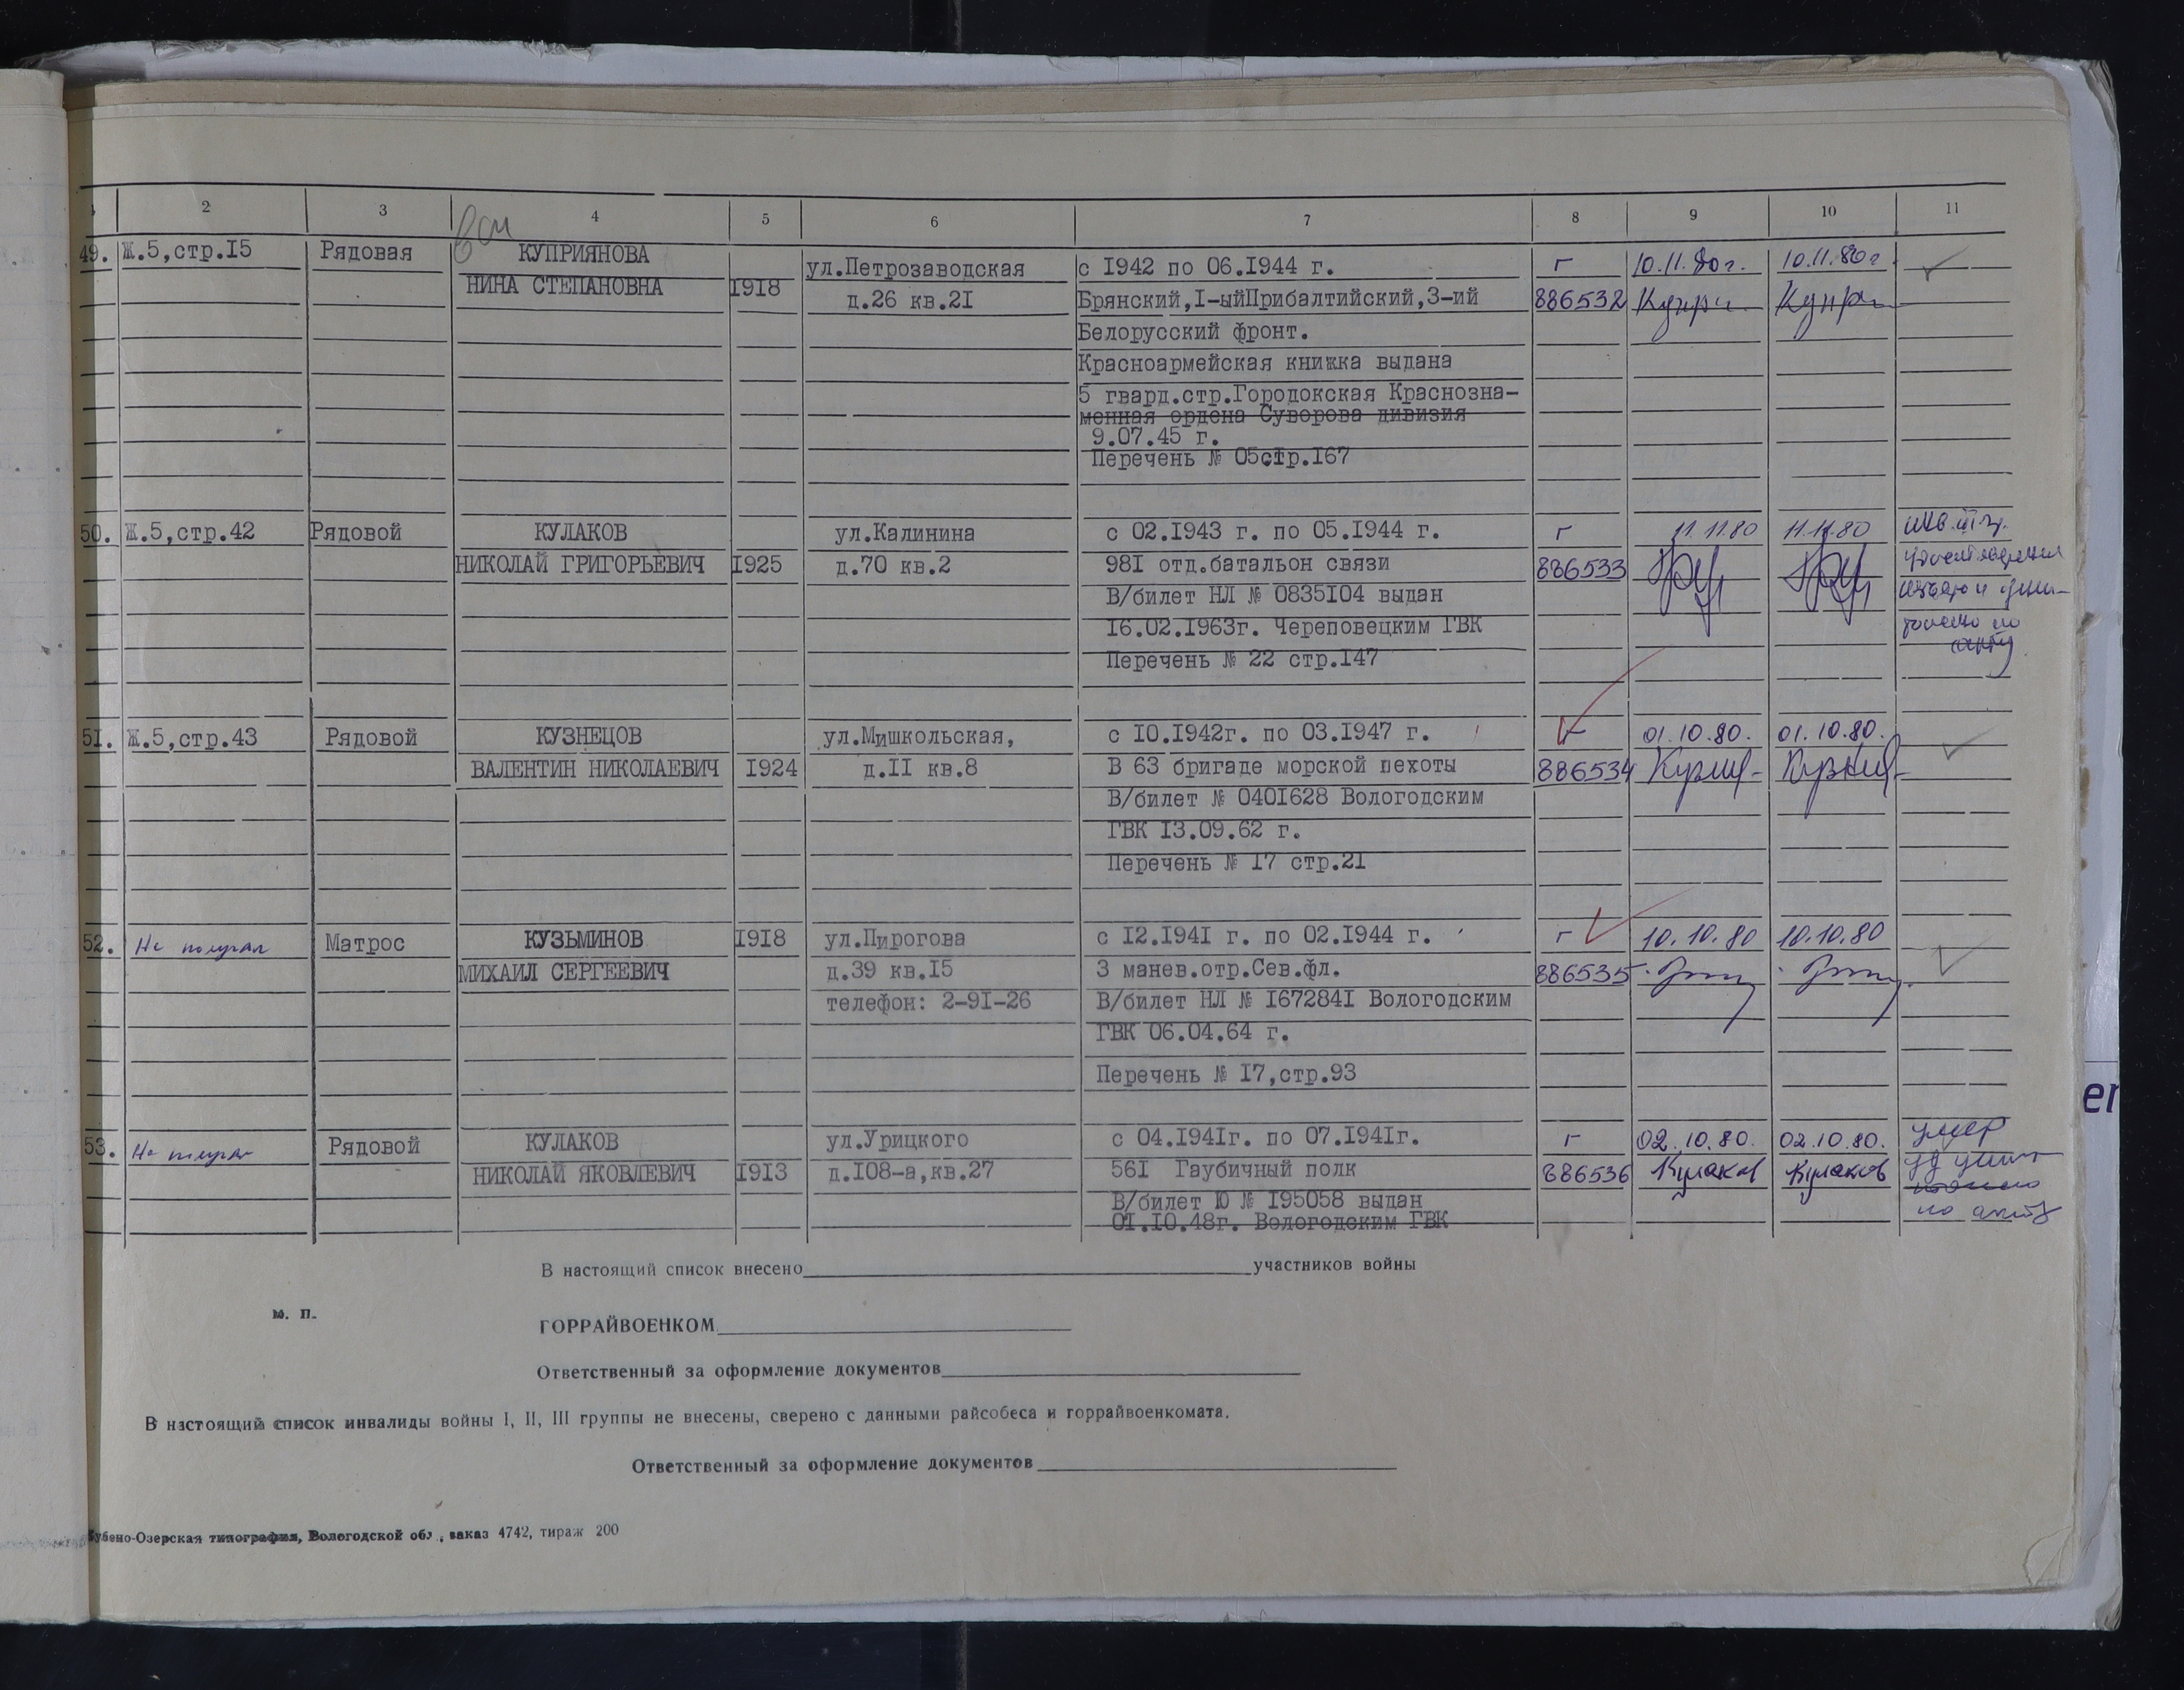 2 3 4 5 6 7 8 9 10 11
49. Ж.5,стр.I5 Рядовая КУПРИЯНОВА ул.Петрозаводская с I942 по 06.I944 г. г 10.11.80г. 10.11.80г
НИНА СТЕПАНОВНА I9I8 д.26 кв.2I Брянский,I-ыйПрибалтийский,3-ий 886532
Белорусский фронт.
Красноармейская книжка выдана
5 гвард.стр.Городокская Краснозна-
менная ордена Суворова дивизия
9.07.45 г.
Перечень № 05стр.I67
50. Ж.5,стр.42 Рядовой КУЛАКОВ ул.Калинина с 02.I943 г. по 05.I944 г. г 11.11.80 11.11.80 инв. III гр.
НИКОЛАЙ ГРИГОРЬЕВИЧ I925 д.70 кв.2 98I отд.батальон связи 886533
В/билет НЛ № 0835I04 выдан
I6.02.I963г. Череповецким ГВК
Перечень № 22 стр.I47
5I. Ж.5,стр.43 Рядовой КУЗНЕЦОВ ул.Мишкольская, с I0.I942г. по 03.I947 г. г 01.10.80. 01.10.80.
ВАЛЕНТИН НИКОЛАЕВИЧ I924 д.II кв.8 В 63 бригаде морской пехоты 886534
В/билет № 040I628 Вологодским
ГВК I3.09.62 г.
Перечень № I7 стр.2I
52. Не получал Матрос КУЗЬМИНОВ I9I8 ул.Пирогова с I2.I94I г. по 02.I944 г. г 10.10.80 10.10.80
МИХАИЛ СЕРГЕЕВИЧ д.39 кв.I5 3 манев.отр.Сев.фл. 886535
телефон: 2-9I-26 В/билет НЛ № I67284I Вологодским
ГВК 06.04.64 г.
Перечень № I7,стр.93
53. Не получал Рядовой КУЛАКОВ ул.Урицкого с 04.I94Iг. по 07.I94Iг. г 02.10.80. 02.10.80. умер
НИКОЛАЙ ЯКОВЛЕВИЧ I9I3 д.I08-а,кв.27 56I Гаубичный полк 886536 Кулаков Кулаков
В/билет Ю № I95058 выдан
0I.I0.48г. Вологодским ГВК по акту
В настоящий список внесено участников войны
м. п.
ГОРРАЙВОЕНКОМ
Ответственный за оформление документов
В настоящий список инвалиды войны I, II, III группы не внесены, сверено с данными райсобеса и горрайвоенкомата.
Ответственный за оформление документов
Кубено-Озерская типография, Вологодской обл., заказ 4742, тираж 200